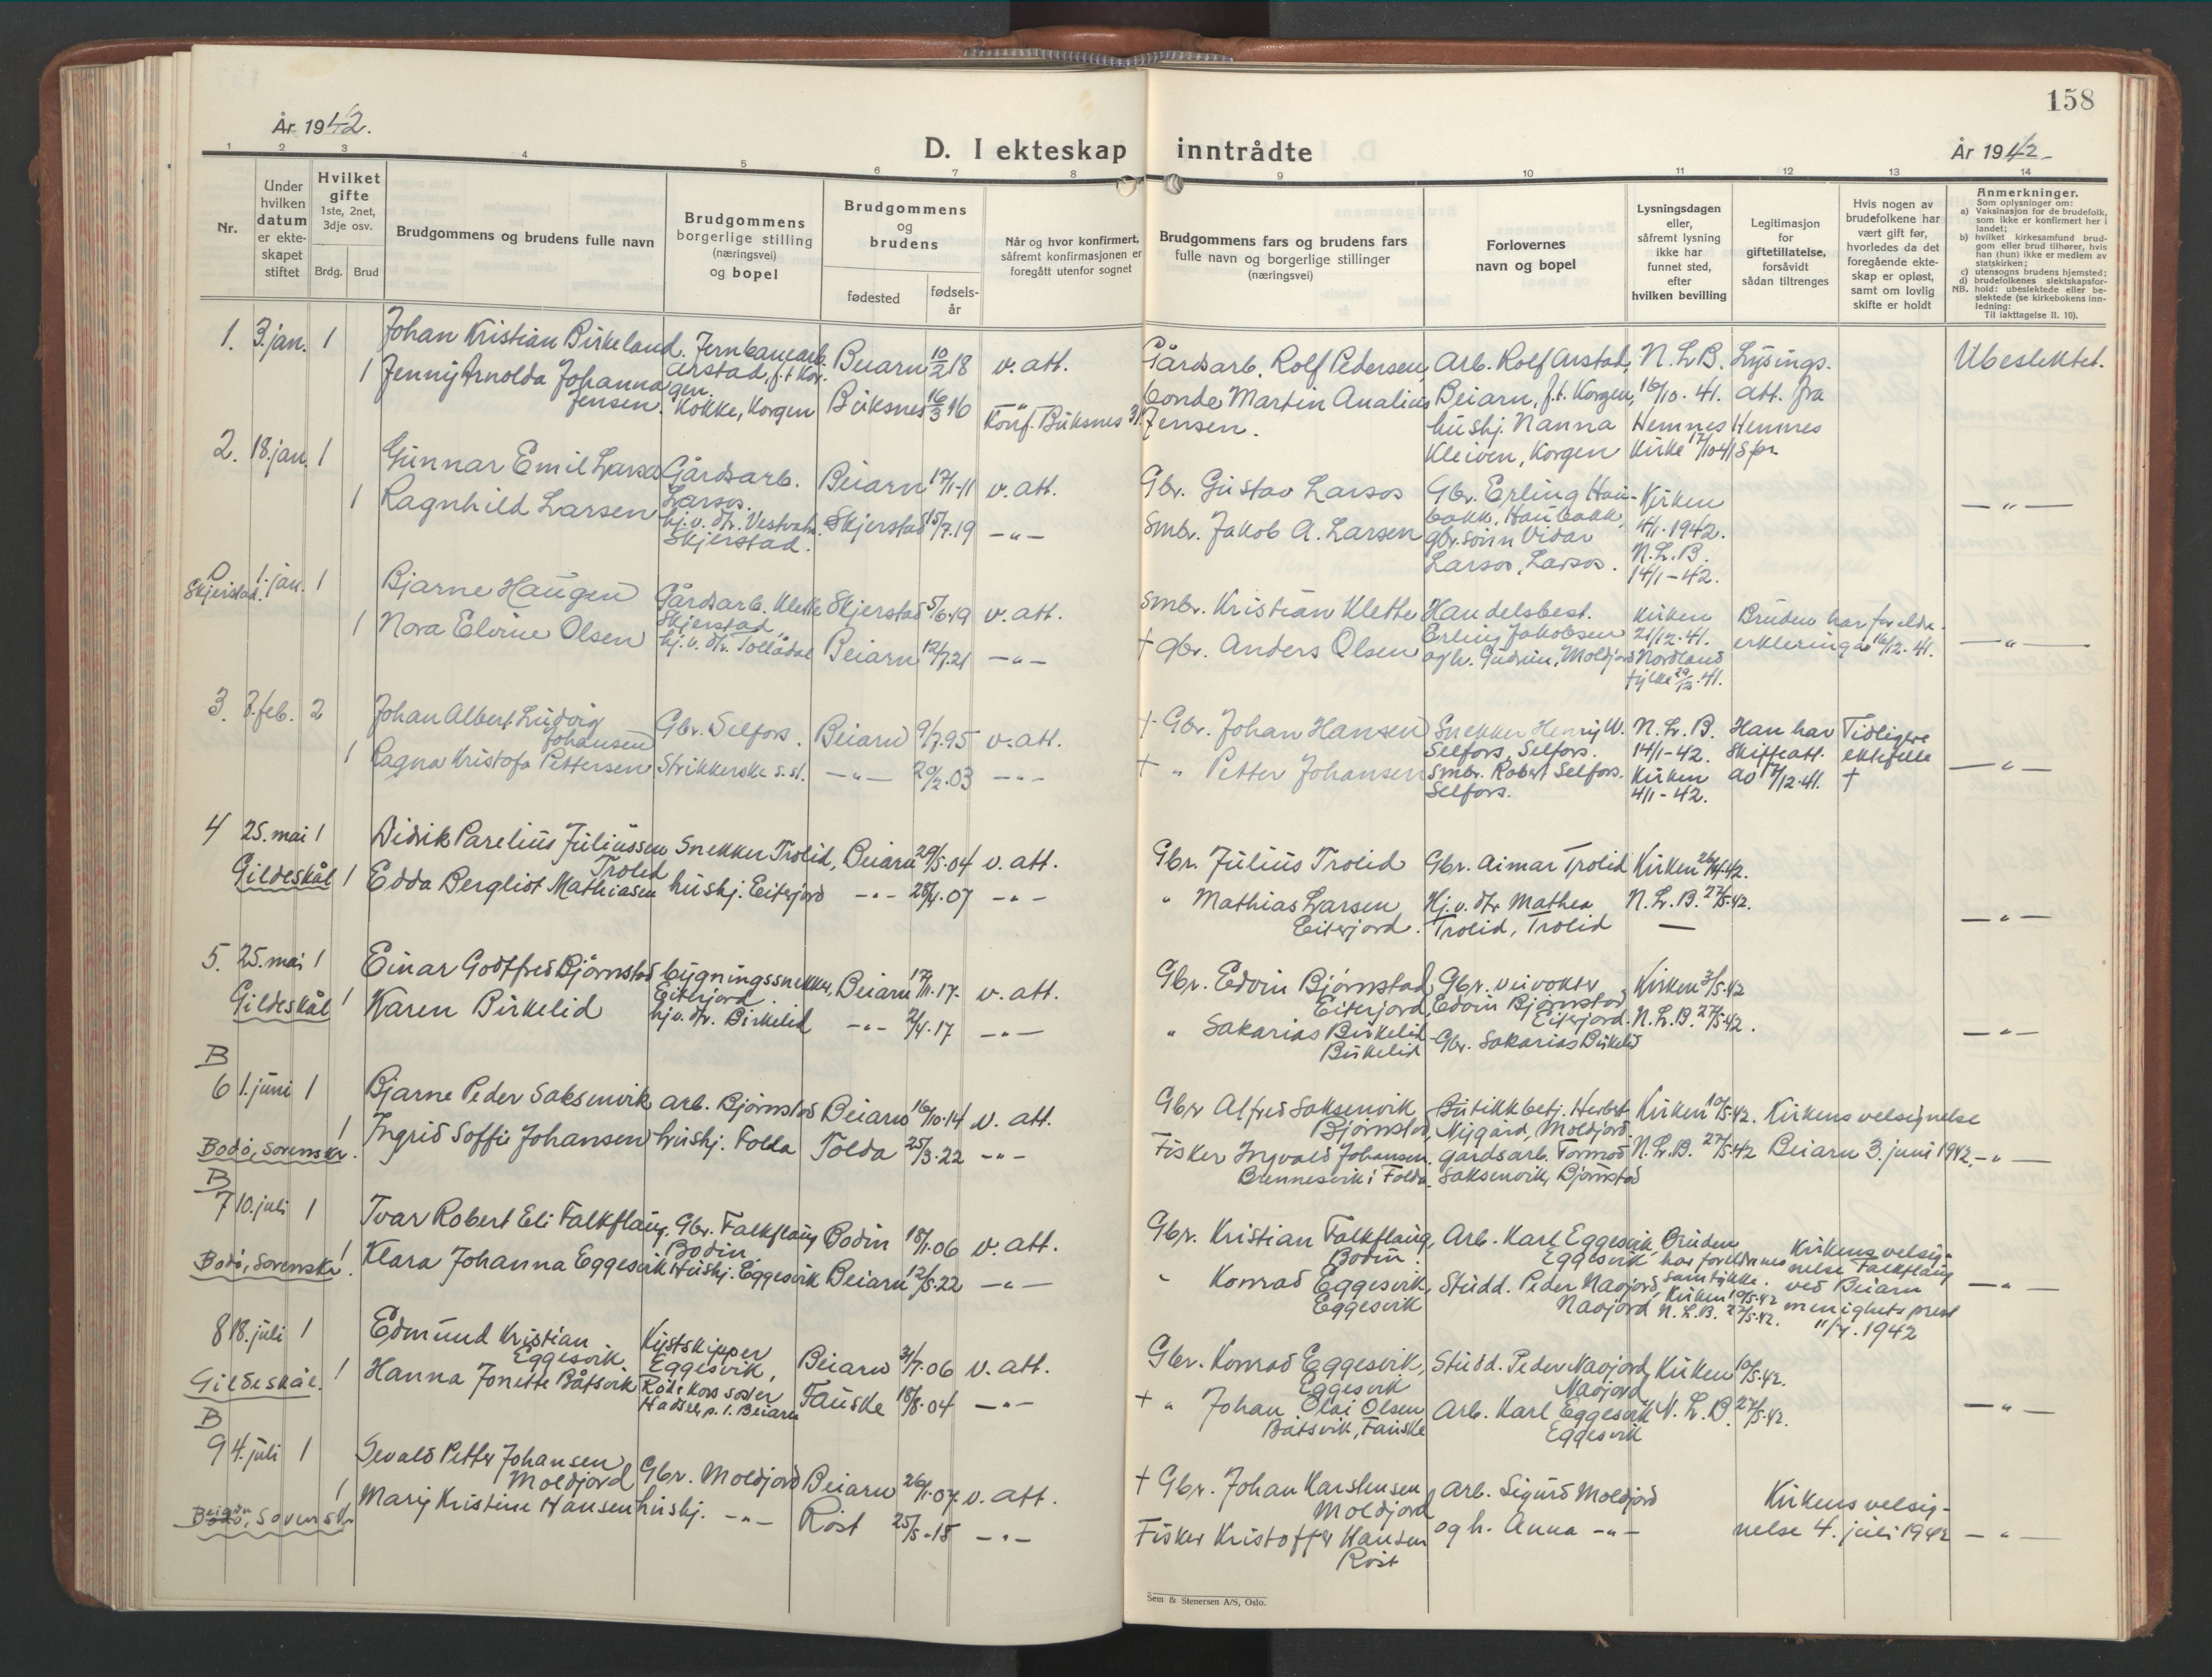 158
År 1942.
År 1942
D. I ekteskap inntrådte
1 2 3 4 5 6 7 8 9 10 11 12 13 14
Nr.
Under hvilken datum er ekteskapet stiftet
Hvilket gifte
1ste, 2net, 3dje osv.
Brdg. Brud
Brudgommens og brudens fulle navn
Brudgommens borgerlige stilling (næringsvei) og bopel
Brudgommens og brudens
fødested
fødselsår
Når og hvor konfirmert, såfremt konfirmasjonen er foregått utenfor sognet
Brudgommens fars og brudens fars fulle navn og borgerlige stillinger (næringsvei)
Forlovernes navn og bopel
Lysningsdagen eller, såfremt lysning ikke har funnet sted, efter hvilken bevilling
Legitimasjon for giftetillatelse, forsåvidt sådan tiltrenges
Hvis nogen av brudefolkene har vært gift før, hvorledes da det foregående ekteskap er opløst, samt om lovlig skifte er holdt
Anmerkninger.
Som oplysninger om:
a) Vaksinasjon for de brudefolk, som ikke er konfirmert her i landet;
b) hvilket kirkesamfund brudgom eller brud tilhører, hvis han (hun) ikke er medlem av statskirken;
c) utensogns brudens hjemsted;
d) brudefolkenes slektskapsforhold: ubeslektede eller beslektede (se kirkebokens innledning:
NB.
Til iakttagelse II. 10).
1. 3. jan. 1 Johan Kristian Birkeland. Jernbanearb. Arstad, f.t. Korgen. Beiarn 10/2 18 v. att.
Gårdsarb. Rolf Pedersen, Arb. Rolf Arstad, Beiarn, f.t. Korgen, N.L.B. 16/10-41. Lysings. att. fra Hemnes Ubeslektet.
1 Jenny Arnolda Johanna Jensen. Kokke, Korgen Buksnes 16/3 16 Konf. Buksnes 31.
bonde Martin Analius Jensen. hushj. Nanna Kleiven, Korgen Hemnes Kirke 12/10-41 Spr.
2. 18. jan. 1 Gunnar Emil Larsos Gårdsarb. Larsos. Beiarn 12/11-11 v. att.
Gbr. Gustav Larsos Gbr. Erling Haubakk, Haubakk, Kirken 4/1-1942. —"—
1 Ragnhild Larsen hj.v. dtr. Skjerstad. Skjerstad 15/7.19 —"—
Smbr. Jakob A. Larsen gbr.sønn Vidar Larsos, Larsos. N.L.B. 14/1-42.
0 Skjerstad. 1. jan. 1 Bjarne Haugen Gårdsarb. Klette Skjerstad Skjerstad 5/6.19 v. att.
Smbr. Kristian Klette Handelsbest. Erling Jakobsen Kirken 21/12-41. Bruden har foreldreerklering av 16/12-41. —"—
1 Nora Elvine Olsen hj.v. dtr. Tollådal Beiarn 12/7.21 —"—
† gbr. Anders Olsen og h. Gudrun, Moldjord Nordland fylke 29/12.41.
3. 8. feb. 2 Johan Albert Ludvig Johansen Gbr. Selfors. Beiarn 9/7.95 v. att.
† Gbr. Johan Hansen Snekker Henry W. Selfors, Selfors. N.L.B. 14/1-42. Han har skifteatt. av 17/12-41. Tidligere ektefelle † —"—
1 Ragna Kristofa Pettersen Strikkerske s.st. —"— 20/2.03 —"—
† " Petter Johansen Smbr. Robert Selfors. Selfors. Kirken 4/1-42.
4 25. mai 1 Didrik Parelius Juliussen Trolid Snekker Trolid, Beiarn 29/5.04 v. att.
Gbr. Julius Trolid Gbr. Aimar Trolid Kirken 26/4.42.
Gildeskål 1 Edda Bergliot Mathiasen hushj. Eiterjord —"— 28/4.07 —"—
" Mathias Larsen Eiterjord. Hj.v. dtr Mathea Trolid, Trolid N.L.B. 27/5.42. —"—
5. 25. mai 1 Einar Godtfred Bjørnstad bygningssnekker, Eiterjord. Beiarn 17/11.17. v. att.
Gbr. Edvin Bjørnstad, Eiterjord, Gbr. veivokter Edvin Bjørnstad, Eiterjord. Kirken 3/5.42
Gildeskål 1 Karen Birkelid hj.v. dtr. Birkelid —"— 2/4.17 —"—
" Sakarias Birkelid Birkelid Gbr. Sakarias Birkelid N.L.B. 27/5.42. —"—
B
6 1. juni 1 Bjarne Peder Saksenvik arb. Bjørnstad Beiarn 16/10.14 v. att.
Gbr Alfred Saksenvik Bjørnstad, Butikkbetj. Herbert Nygård, Moldjord. Kirken 10/5.42. Kirkens velsignelse
Bodø, Sorenskr. 1 Ingrid Soffie Johansen hushj. Folda Folda 25/3.22 —"—
Fisker Ingvald Johansen. Brennesvik i Folda. gårdsarb. Tormod Saksenvik, Bjørnstad N.L.B. 27/5.42 Beiarn 3. juni 1942. —"—
B
7 10. juli 1 Ivar Robert Eli Falkflaug. Gbr. Falkflaug Bodin. Bodin 18/11.06 v. att.
Gbr. Kristian Falkflaug, Bodin. Arb. Karl Eggesvik, Eggesvik Bruden har foreldrenes samtykke. Kirkens velsignelse Falkflaug ved Beiarn menighets prest 11/7.1942
Bodø, Sorenskr. 1 Klara Johanna Eggesvik Hushj. Eggesvik Beiarn 12/5.22 —"—
" Konrad Eggesvik, Eggesvik Studd. Peder Navjord, Navjord Kirken 10/5.42 N.L.B. 27/5.42. —"—
8 18. juli 1 Edmund Kristian Eggesvik. Kystskipper Eggesvik, Beiarn 31/7.06 v. att.
Gbr. Konrad Eggesvik, Eggesvik Studd. Peder Navjord, Navjord Kirken 10/5.42.
Gildeskål. 1 Hanna Jonette Båtsvik Røde Kors søster Hadsel p.t. Beiarn Fauske 18/8.04 —"—
† " Johan Olai Olsen Båtsvik, Fauske Arb. Karl Eggesvik Eggesvik N.L.B. 27/5.42. —"—
B
9 4. juli 1 Sevald Petter Johansen Moldjord Gbr. Moldjord Beiarn 26/11.07 v. att.
† Gbr. Johan Karstensen Moldjord Arb. Sigurd Moldjord Kirkens velsig-
Beiarn, Sorenskr 1 Mary Kristine Hansen hushj. —"— Røst 25/5.15 —"—
Fisker Kristoffer Hansen Røst og h. Anna —"— nelse 4. juli 1942 —"—
Sem & Stenersen A/S, Oslo.